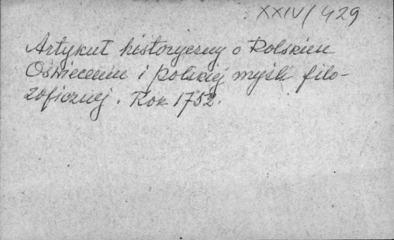 XXIV/429
Artykuł historyczny o Polskiem
Oświeceniu i polskiej myśli filo-
zoficznej. Rok 1752.